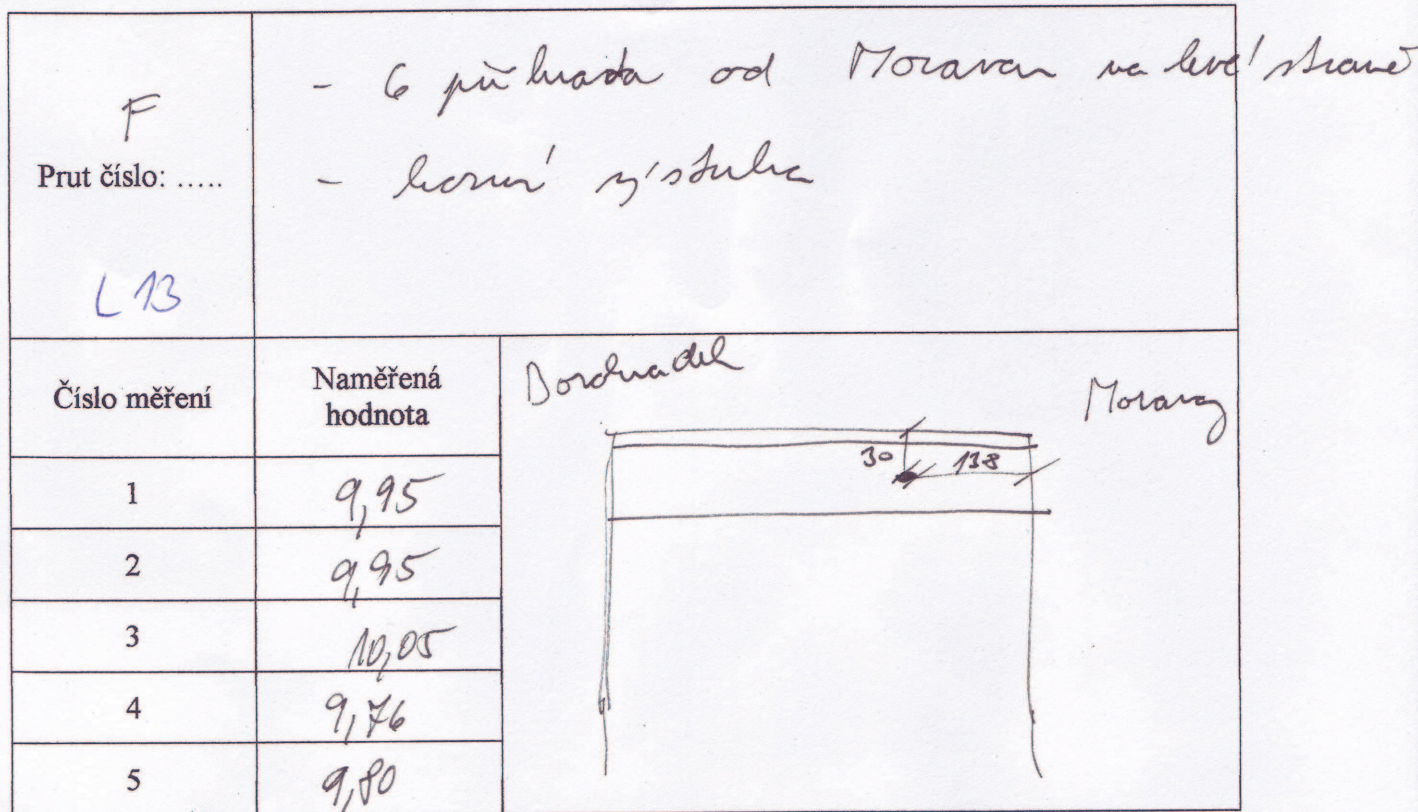 F
Prut číslo: .....
L 13
- 6 příhrada od Moravan na levé straně
- horní výstuha
Číslo měření
Naměřená
hodnota
1
9,95
2
9,95
3
10,05
4
9,76
5
9,80
Borohrádek
Moravany
30
138